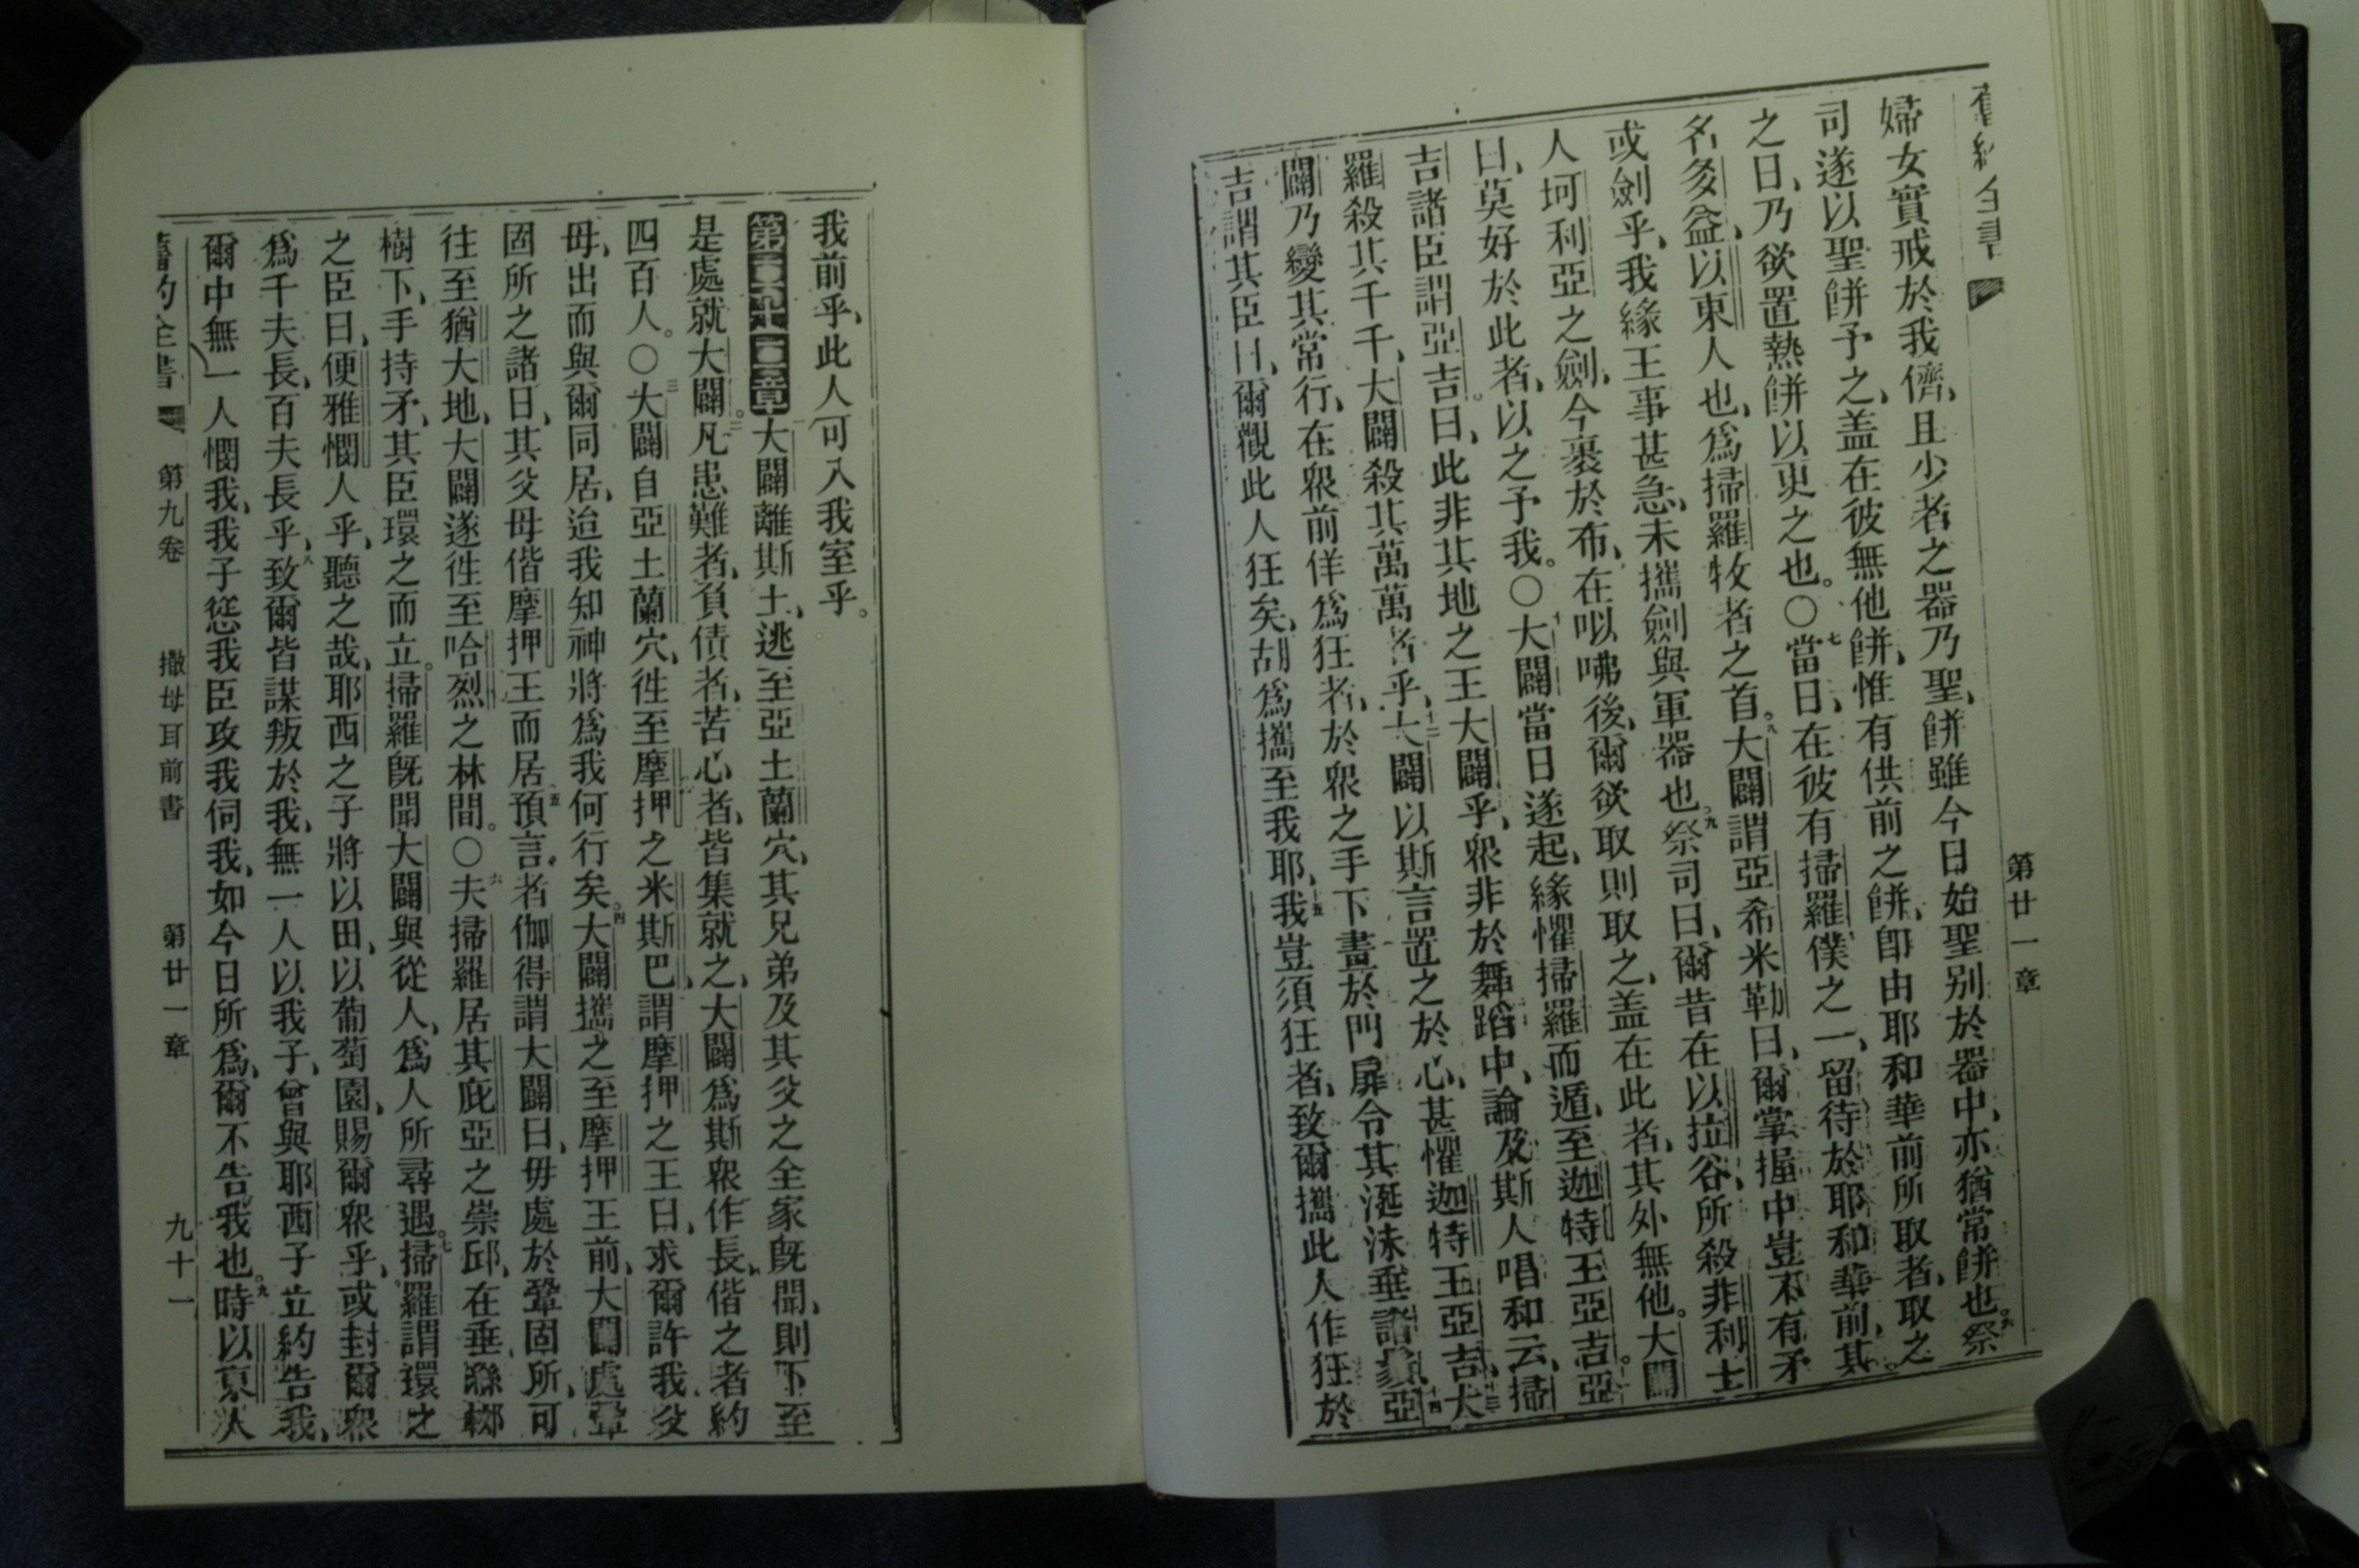 舊約全書
第廿一章
婦女實戒於我儕、且少者之器乃聖、餅雖今日始聖別於器中、亦猶常餅也。六祭
司遂以聖餅予之、盖在彼無他餅、惟有供前之餅、卽由耶和華前所取者、取之
之日、乃欲置熱餅以更之也。○七當日、在彼有掃羅僕之一、留待於耶和華前、其
名多益、以東人也、爲掃羅牧者之首。八大闢謂亞希米勒曰、爾掌握中豈不有矛
或劍乎、我緣王事甚急、未攜劍與軍器也。九祭司曰、爾昔在以拉谷、所殺非利士
人坷利亞之劍、今裹於布、在㕥咈後、爾欲取則取之、盖在此者、其外無他。大闢
曰、莫好於此者、以之予我。○十大闢當日遂起、緣懼掃羅而遁、至迦特王亞吉。十一亞
吉諸臣謂亞吉曰、此非其地之王大闢乎、衆非於舞蹈中、論及斯人唱和云、掃
羅殺其千千、大闢殺其萬萬者乎、十二大闢以斯言置之於心、甚懼迦特王亞吉、十三大
闢乃變其常行、在衆前佯爲狂者、於衆之手下畫於門扉、令其涎沫垂諸鬚、十四亞
吉謂其臣曰、爾觀此人狂矣、胡爲攜至我耶、十五我豈須狂者、致爾攜此人作狂於
我前乎、此人可入我室乎。
第二十二章大闢離斯土、逃至亞土蘭穴、其兄弟及其父之全家既聞、則下至
是處就大闢。二凡患難者、負債者、苦心者、皆集就之、大闢爲斯衆作長、偕之者約
四百人。○三大闢自亞土蘭穴、往至摩押之米斯巴、謂摩押之王曰、求爾許我父
母、出而與爾同居、迨我知神將爲我何行矣。四大闢攜之至摩押王前、大闢處鞏
固所之諸日、其父母偕摩押王而居。五預言者伽得謂大闢曰、毋處於鞏固所、可
往至猶大地、大闢遂往至哈烈之林間。○六夫掃羅居其庇亞之崇邱、在垂絲榔
樹下、手持矛、其臣環之而立。掃羅旣聞大闢與從人、爲人所尋遇。七掃羅謂環之
之臣曰、便雅憫人乎、聽之哉、耶西之子將以田、以葡萄園、賜爾衆乎、或封爾衆
爲千夫長、百夫長乎、八致爾皆謀叛於我、無一人以我子、曾與耶西子立約告我、
爾中無一人憫我、我子慫我臣攻我伺我、如今日所爲、爾不告我也。九時以東人
舊約全書
第九卷
撒母耳前書
第廿一章
九十一